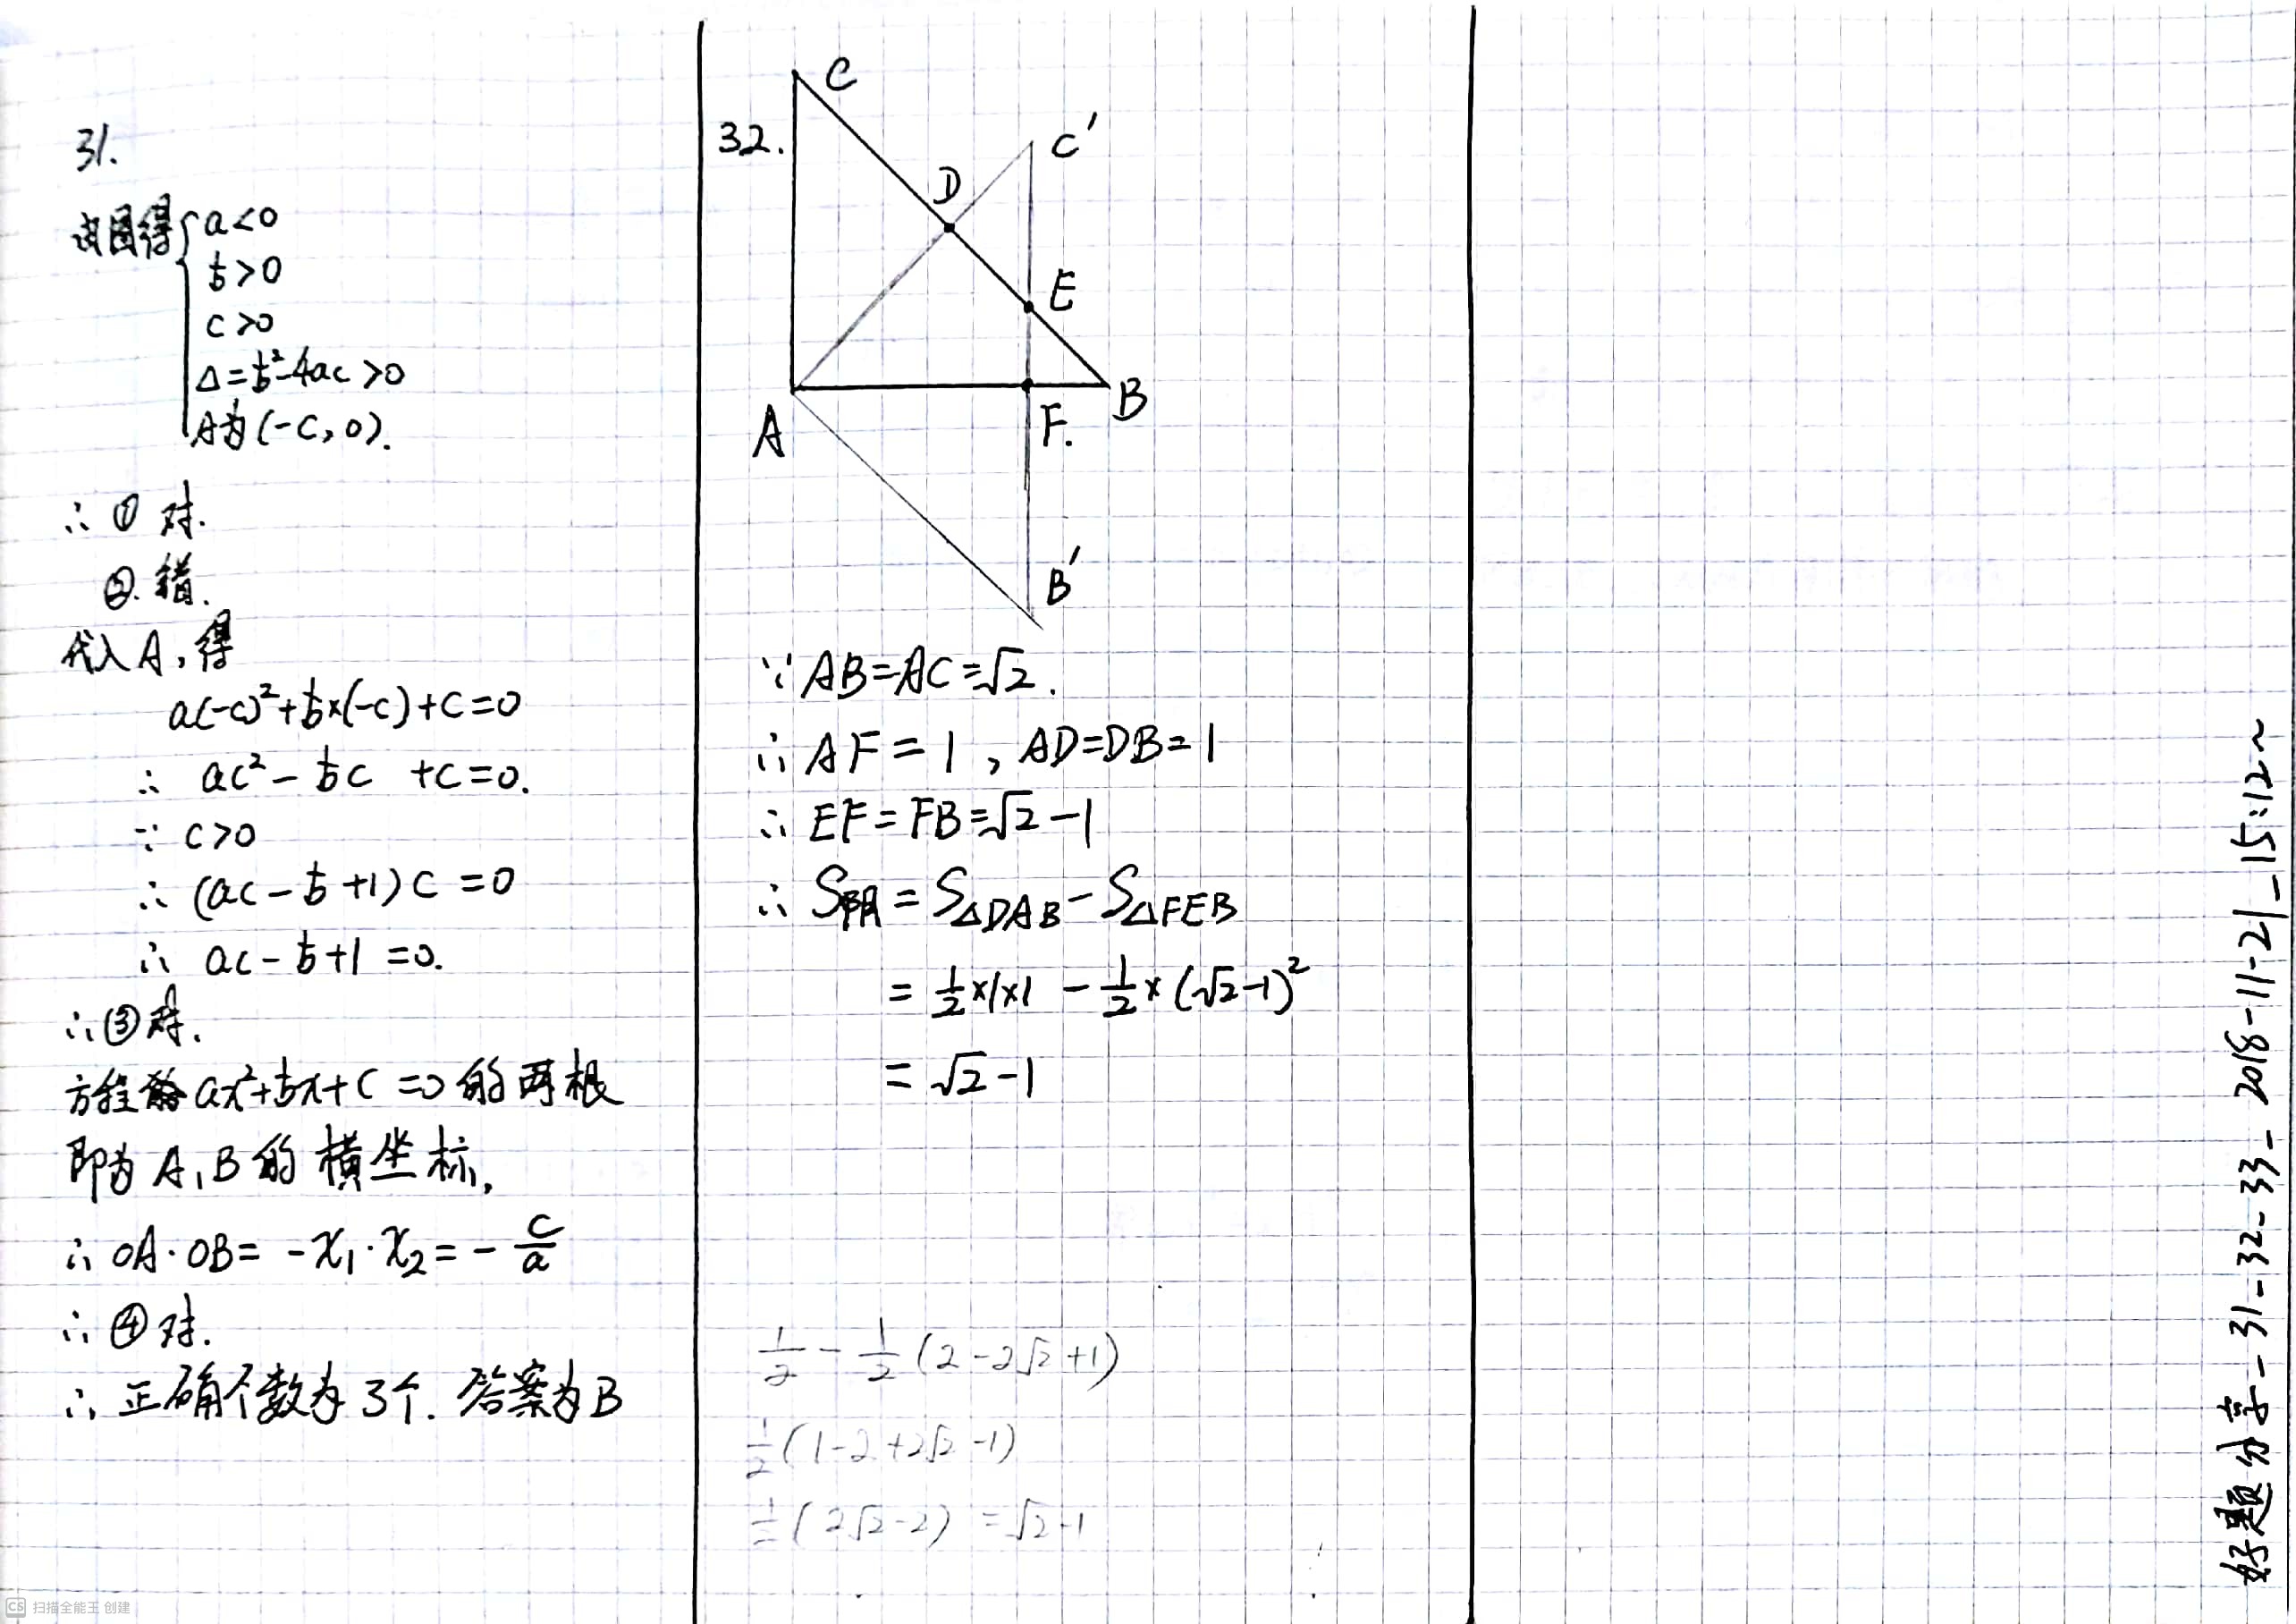 31.
读图得{a<0
b>0
c>0
Δ=b²-4ac>0
A为(-c,0).
∴ ① 对.
②. 错.
代入A,得
a(-c)²+b×(-c)+c=0
∴ ac²-bc +c=0.
∵ c>0
∴ (ac-b+1)c=0
∴ ac-b+1=0.
∴③对.
方程 ax²+bx+c=0的两根
即为A,B的横坐标,
∴ OA·OB= -x₁·x₂= - c/a
∴ ④对.
∴ 正确个数为3个. 答案为B
32.
C
C′
D
E
A
F.
B
B′
∵ AB=AC=√2.
∴ AF=1, AD=DB=1
∴ EF=FB=√2-1
∴ S阴=S△DAB-S△FEB
= 1/2×1×1 - 1/2×(√2-1)²
= √2-1
1/2 - 1/2(2-2√2+1)
1/2(1-2+2√2-1)
1/2(2√2-2) =√2-1
好题分享-31-32-33-2018-11-21-15:12~
CS 扫描全能王 创建